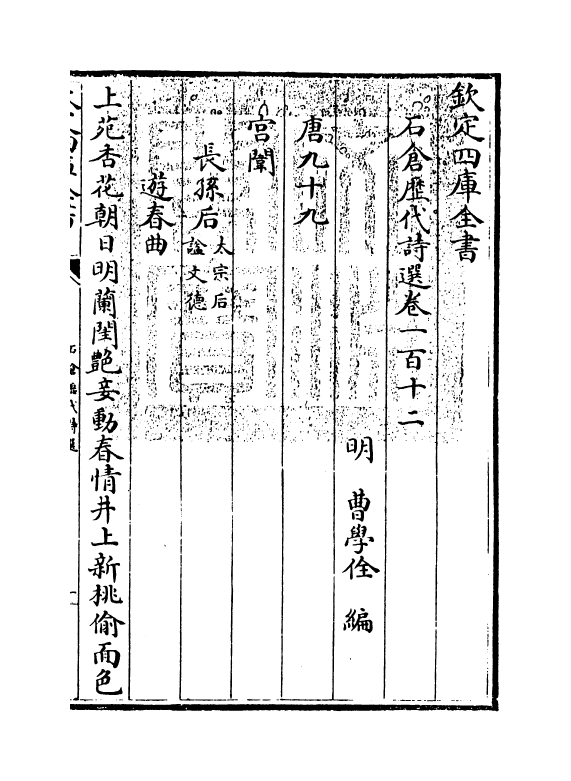 欽定四庫全書
石倉歷代詩選卷一百十二
明　曹學佺　編
唐九十九
宮闈
長孫后太宗后諡文德
遊春曲
上苑香花朝日明蘭閨艷妾動春情井上新桃偷面色
石倉歷代詩選